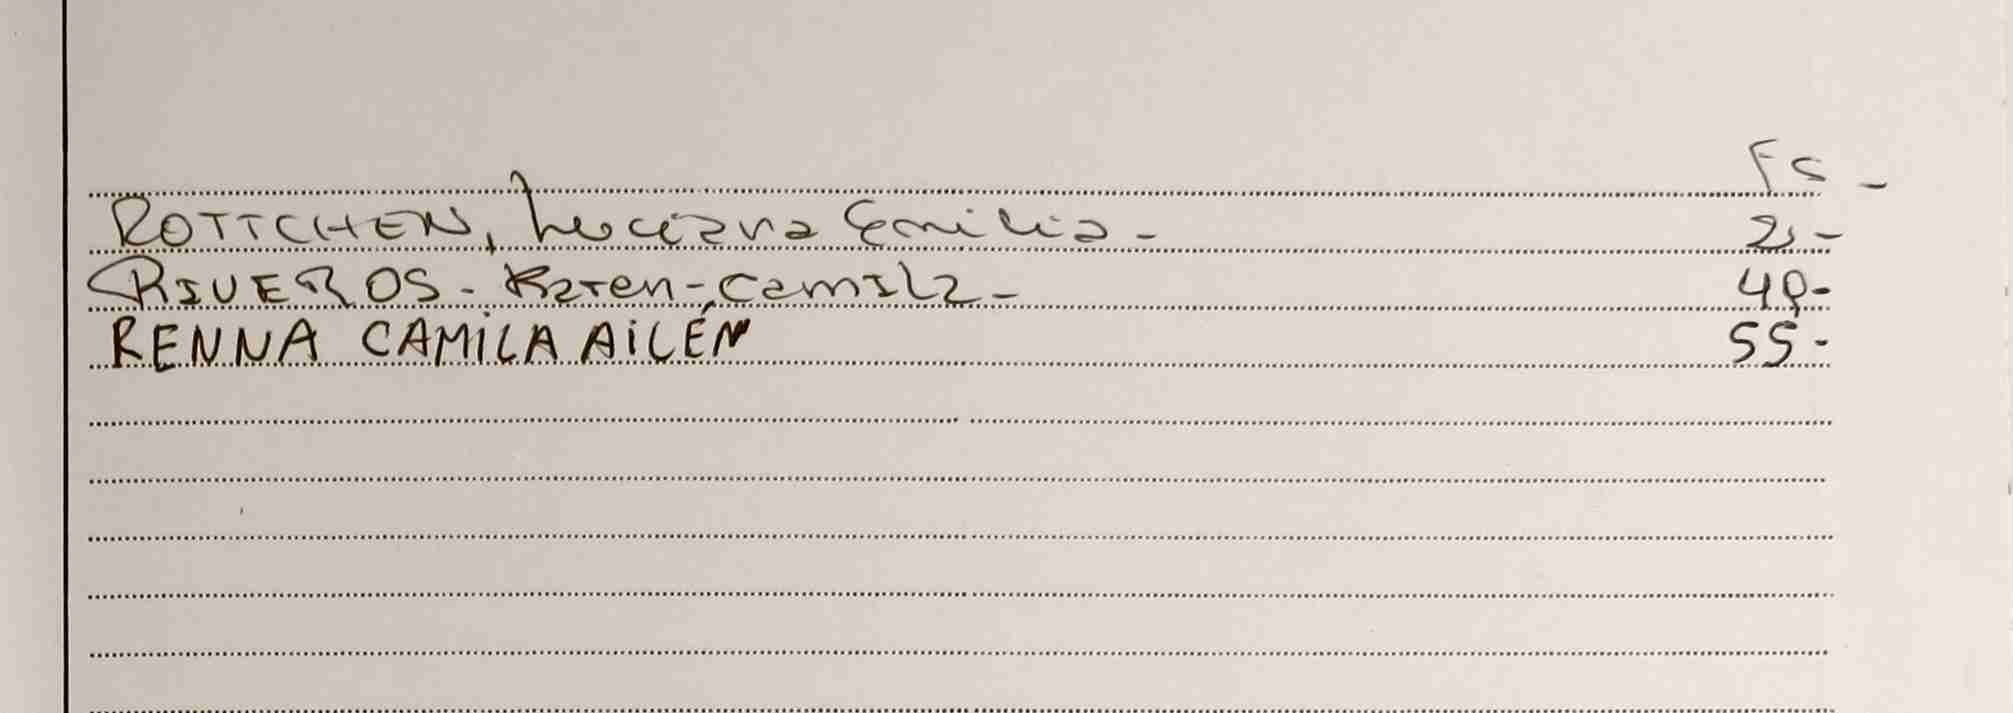 FS -
ROTTCHEN, Luciana Emilia -
RIVEROS - Karen - Camila - 40-
RENNA CAMILA AILÉN 55-